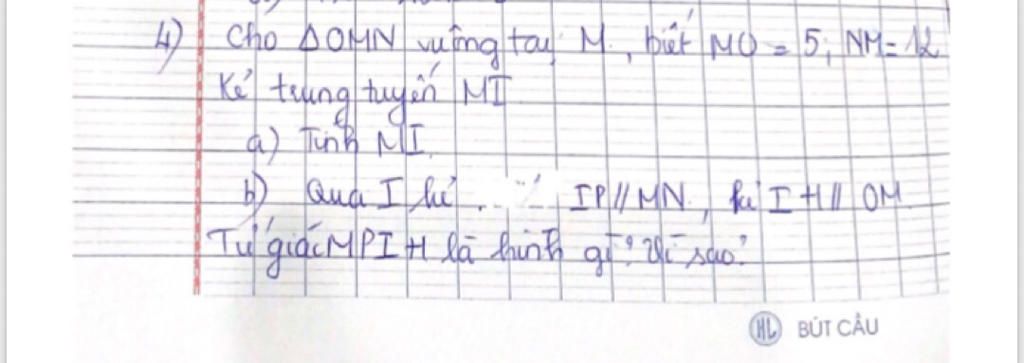 4) Cho ΔOMN vuông tại M, biết MO = 5; NM = 12
Kẻ trung tuyến MI
a) Tính MI.
b) Qua I kẻ IP // MN, kẻ IH // OM
Tứ giác MPIH là hình gì? Vì sao?
HL BÚT CÂU